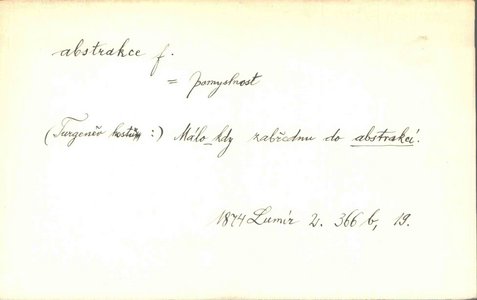 abstrakce f.
= pomyslnost
(Turgeněv :) Málo_kdy zabřednu do abstrakcí.
1874 Lumír 2. 366 b, 19.